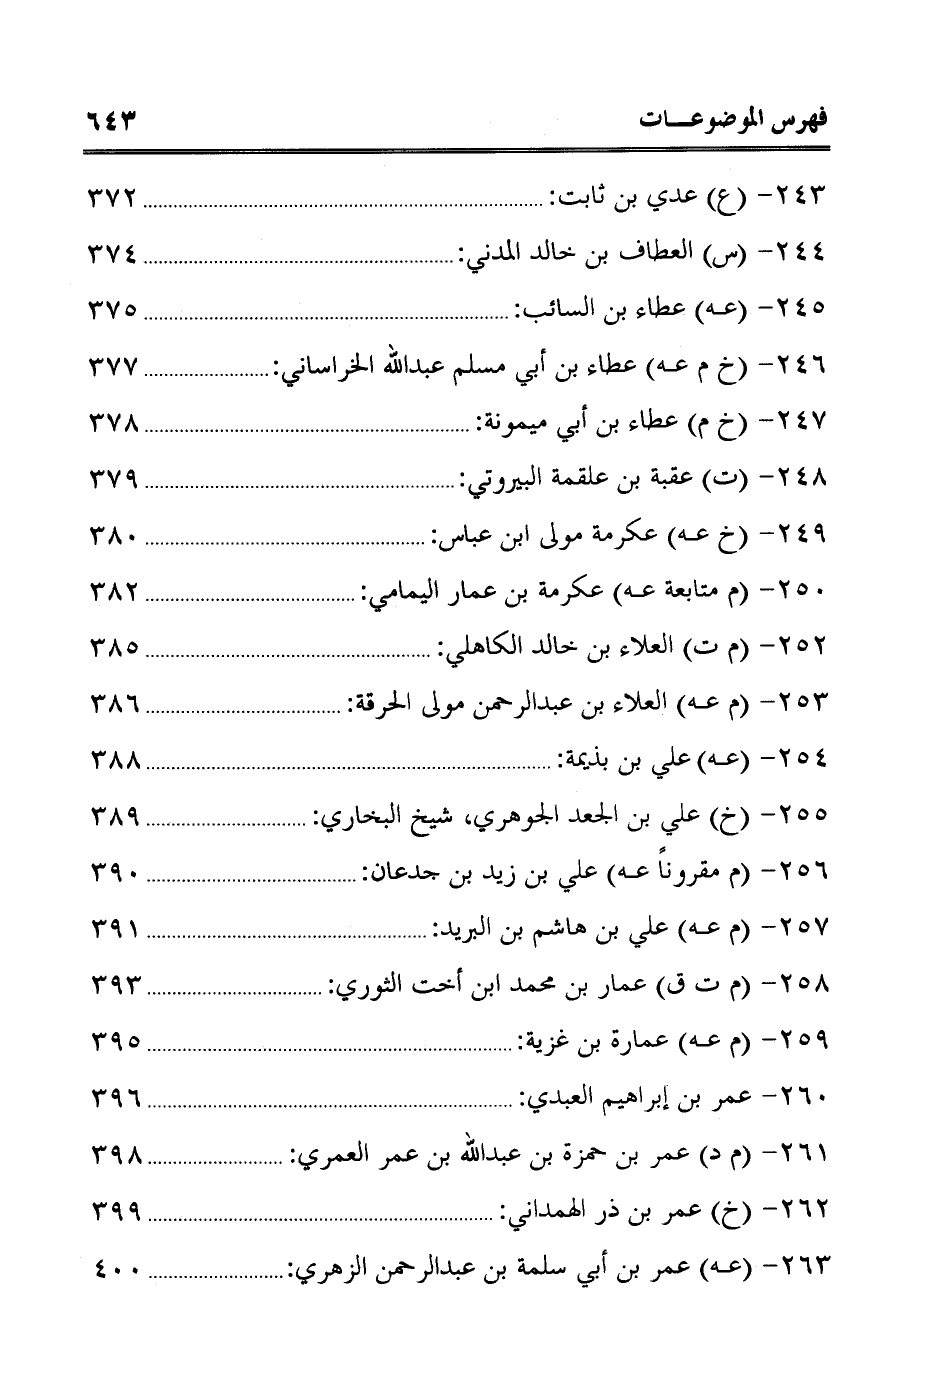 فهرس الموضوعـــات ٦٤٣
٢٤٣- (ع) عدي بن ثابت: ........ ٣٧٢
٢٤٤- (س) العطاف بن خالد المدني: ........ ٣٧٤
٢٤٥- (عـه) عطاء بن السائب: ........ ٣٧٥
٢٤٦- (خ م عـه) عطاء بن أبي مسلم عبدالله الخراساني: ........ ٣٧٧
٢٤٧- (خ م) عطاء بن أبي ميمونة: ........ ٣٧٨
٢٤٨- (ت) عقبة بن علقمة البيروتي: ........ ٣٧٩
٢٤٩- (خ عـه) عكرمة مولى ابن عباس: ........ ٣٨٠
٢٥٠- (م متابعة عـه) عكرمة بن عمار اليمامي: ........ ٣٨٢
٢٥٢- (م ت) العلاء بن خالد الكاهلي: ........ ٣٨٥
٢٥٣- (م عـه) العلاء بن عبدالرحمن مولى الحرقة: ........ ٣٨٦
٢٥٤- (عـه) علي بن بذيمة: ........ ٣٨٨
٢٥٥- (خ) علي بن الجعد الجوهري، شيخ البخاري: ........ ٣٨٩
٢٥٦- (م مقروناً عـه) علي بن زيد بن جدعان: ........ ٣٩٠
٢٥٧- (م عـه) علي بن هاشم بن البريد: ........ ٣٩١
٢٥٨- (م ت ق) عمار بن محمد ابن أخت الثوري: ........ ٣٩٣
٢٥٩- (م عـه) عمارة بن غزية: ........ ٣٩٥
٢٦٠- عمر بن إبراهيم العبدي: ........ ٣٩٦
٢٦١- (م د) عمر بن حمزة بن عبدالله بن عمر العمري: ........ ٣٩٨
٢٦٢- (خ) عمر بن ذر الهمداني: ........ ٣٩٩
٢٦٣- (عـه) عمر بن أبي سلمة بن عبدالرحمن الزهري: ........ ٤٠٠